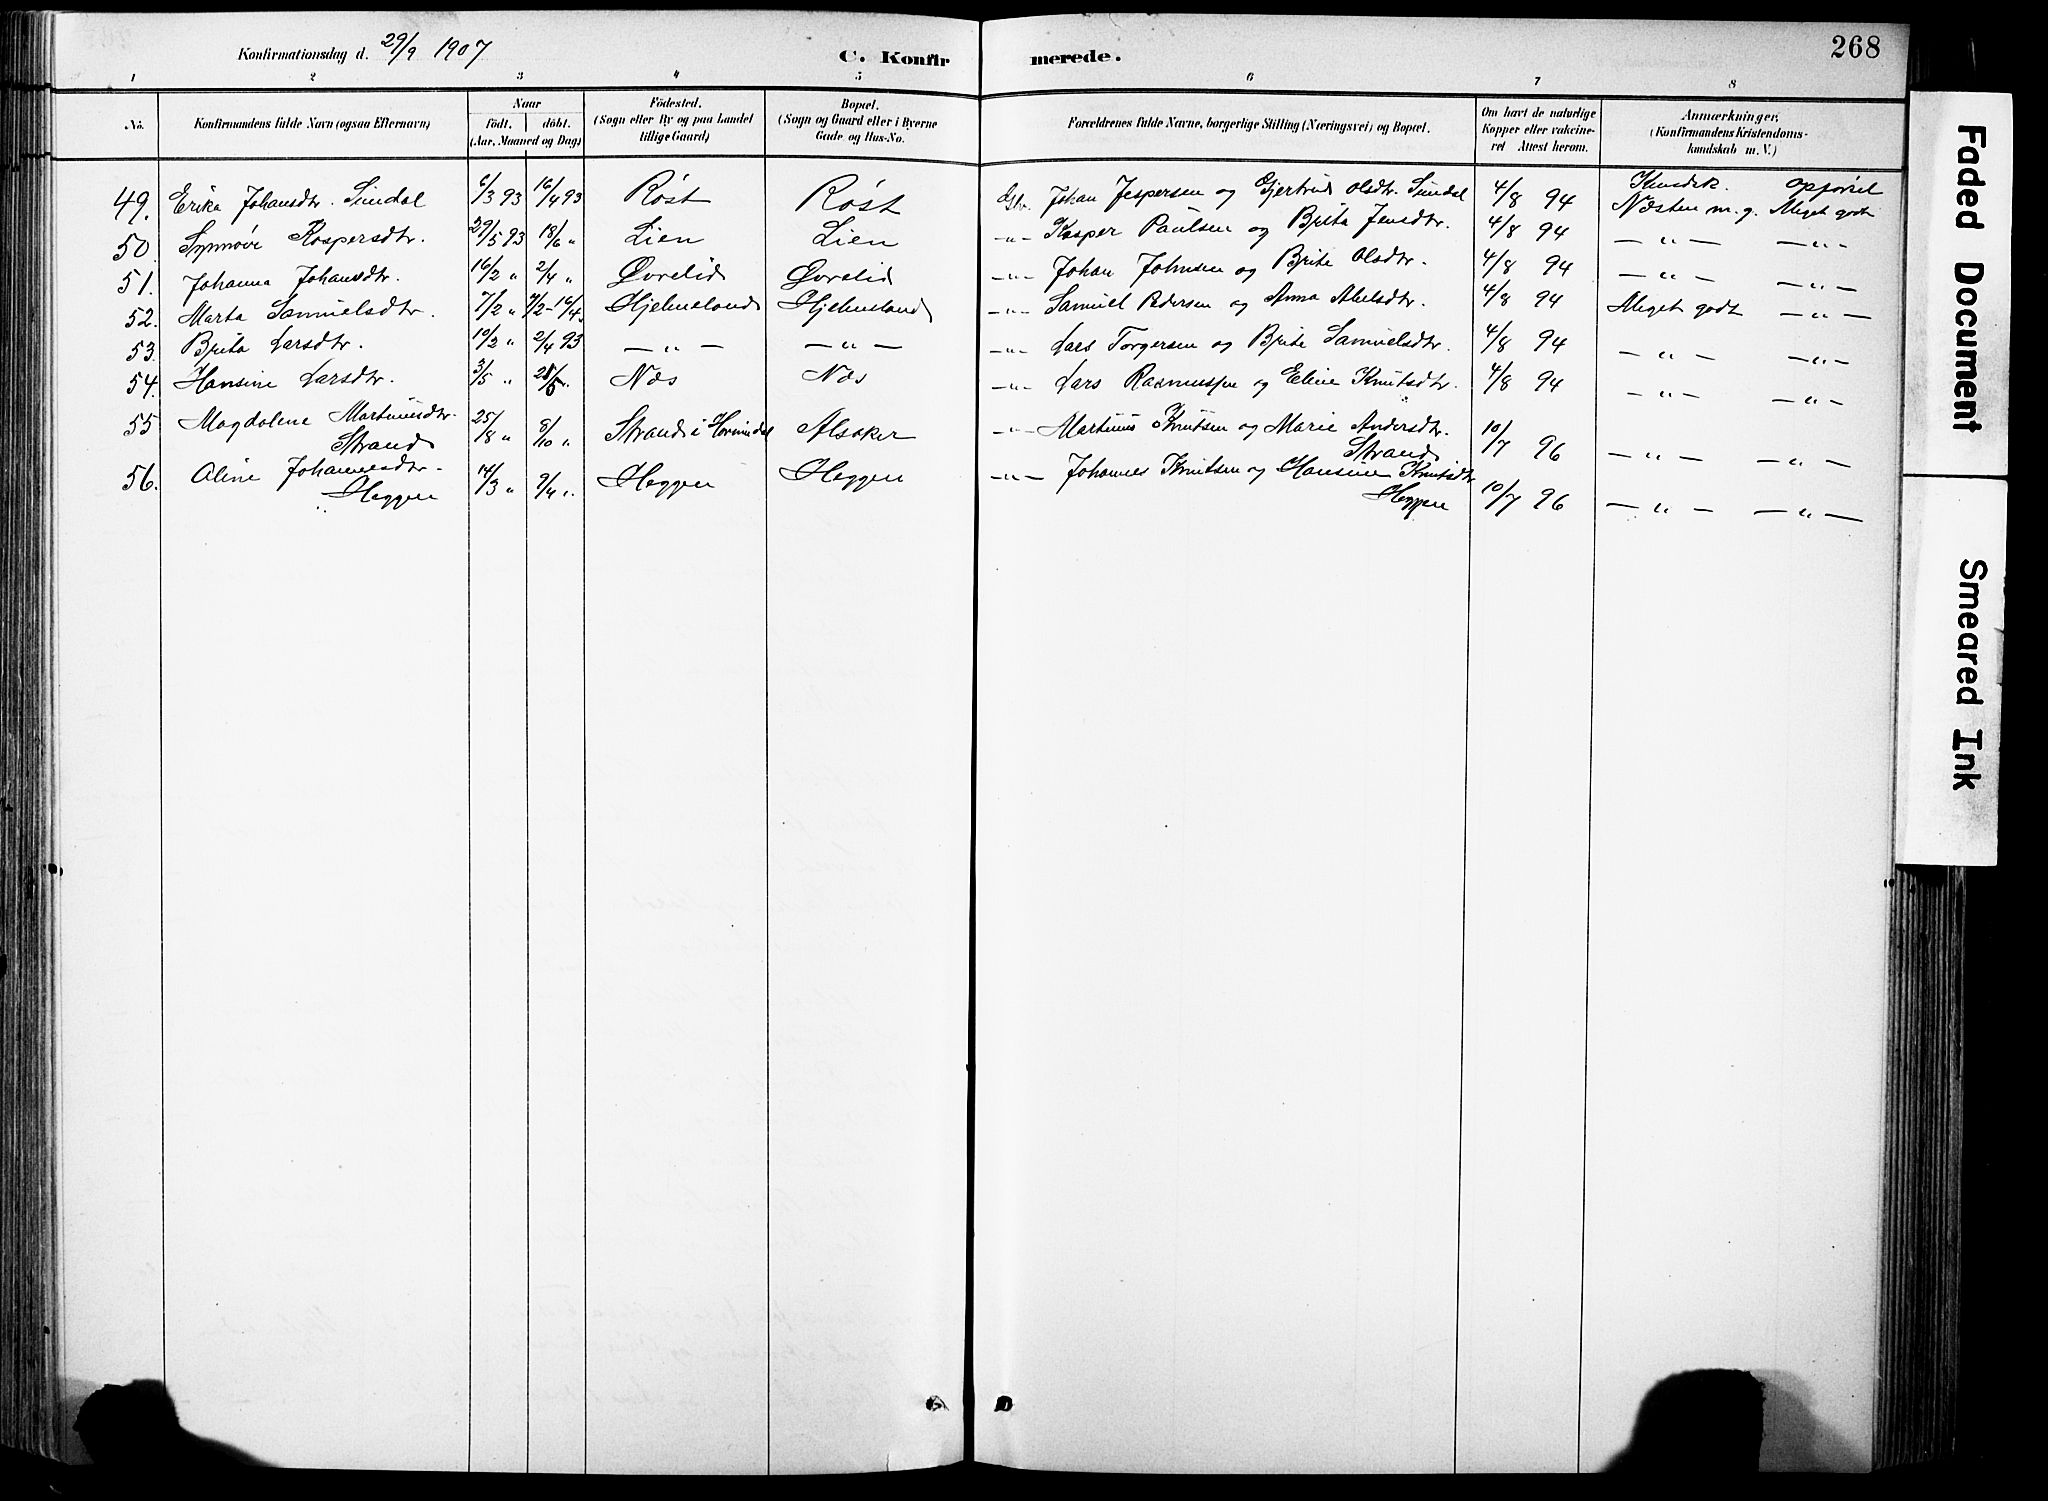 268
Konfirmationsdag d. 29/9 1907 C. Konfirmerede.
1 2 3 4 5 6 7 8
No. Konfirmandens fulde Navn (ogsaa Efternavn) Naar født. døbt. (Aar, Maaned og Dag) Fødested. (Sogn eller By og paa Landet tillige Gaard) Bopæl. (Sogn og Gaard eller i Byerne Gade og Hus-No. Forældrenes fulde Navne, borgerlige Stilling (Næringsvei) og Bopæl. Om havt de naturlige Kopper eller vakcineret Attest herom. Anmærkninger, (Konfirmandens Kristendomskundskab m. V.)
Kundsk. Opførsel
49. Erika Johansdtr. Sundal 6/3 93 16/4 93 Røst Røst Gbr. Johan Jespersen og Gjertrud Olsdtr. Sundal 4/8 94 Næsten m. g. Meget godt
50. Synnøve Kaspersdtr. 29/5 93 18/6 " Lien Lien —"— Kasper Paulsen og Brita Jensdtr. 4/8 94 —"— —"—
51. Johanna Johansdtr. 16/2 " 2/4 " Øvrelid Øvrelid —"— Johan Johnsen og Brite Olsdtr. 4/8 94 —"— —"—
52. Marta Samuelsdtr. 7/2 " 7/2 - 16/4 Hjelmeland Hjelmeland —"— Samuel Pedersen og Anna Abelsdtr. 4/8 94 Meget godt —"—
53. Brita Larsdtr. 10/2 " 2/4 93 —"— —"— —"— Lars Torgersen og Brite Samuelsdtr. 4/8 94 —"— —"—
54. Hansine Larsdtr. 3/5 " 28/5 " Næs Næs —"— Lars Rasmussen og Eline Knutsdtr. 4/8 94 —"— —"—
55 Magdalena Martinusdtr. Strand 25/8 " 8/10 " Strand i Hornindal Alsaker —"— Martinus Knutsen og Marie Andersdtr. Strand 10/7 96 —"— —"—
56. Oline Johannesdtr. Heggen 14/3 " 9/4 " Heggen Heggen —"— Johannes Knutsen og Hansine Knutsdtr Heggen 10/7 96 —"— —"—
Faded Document
Smeared Ink